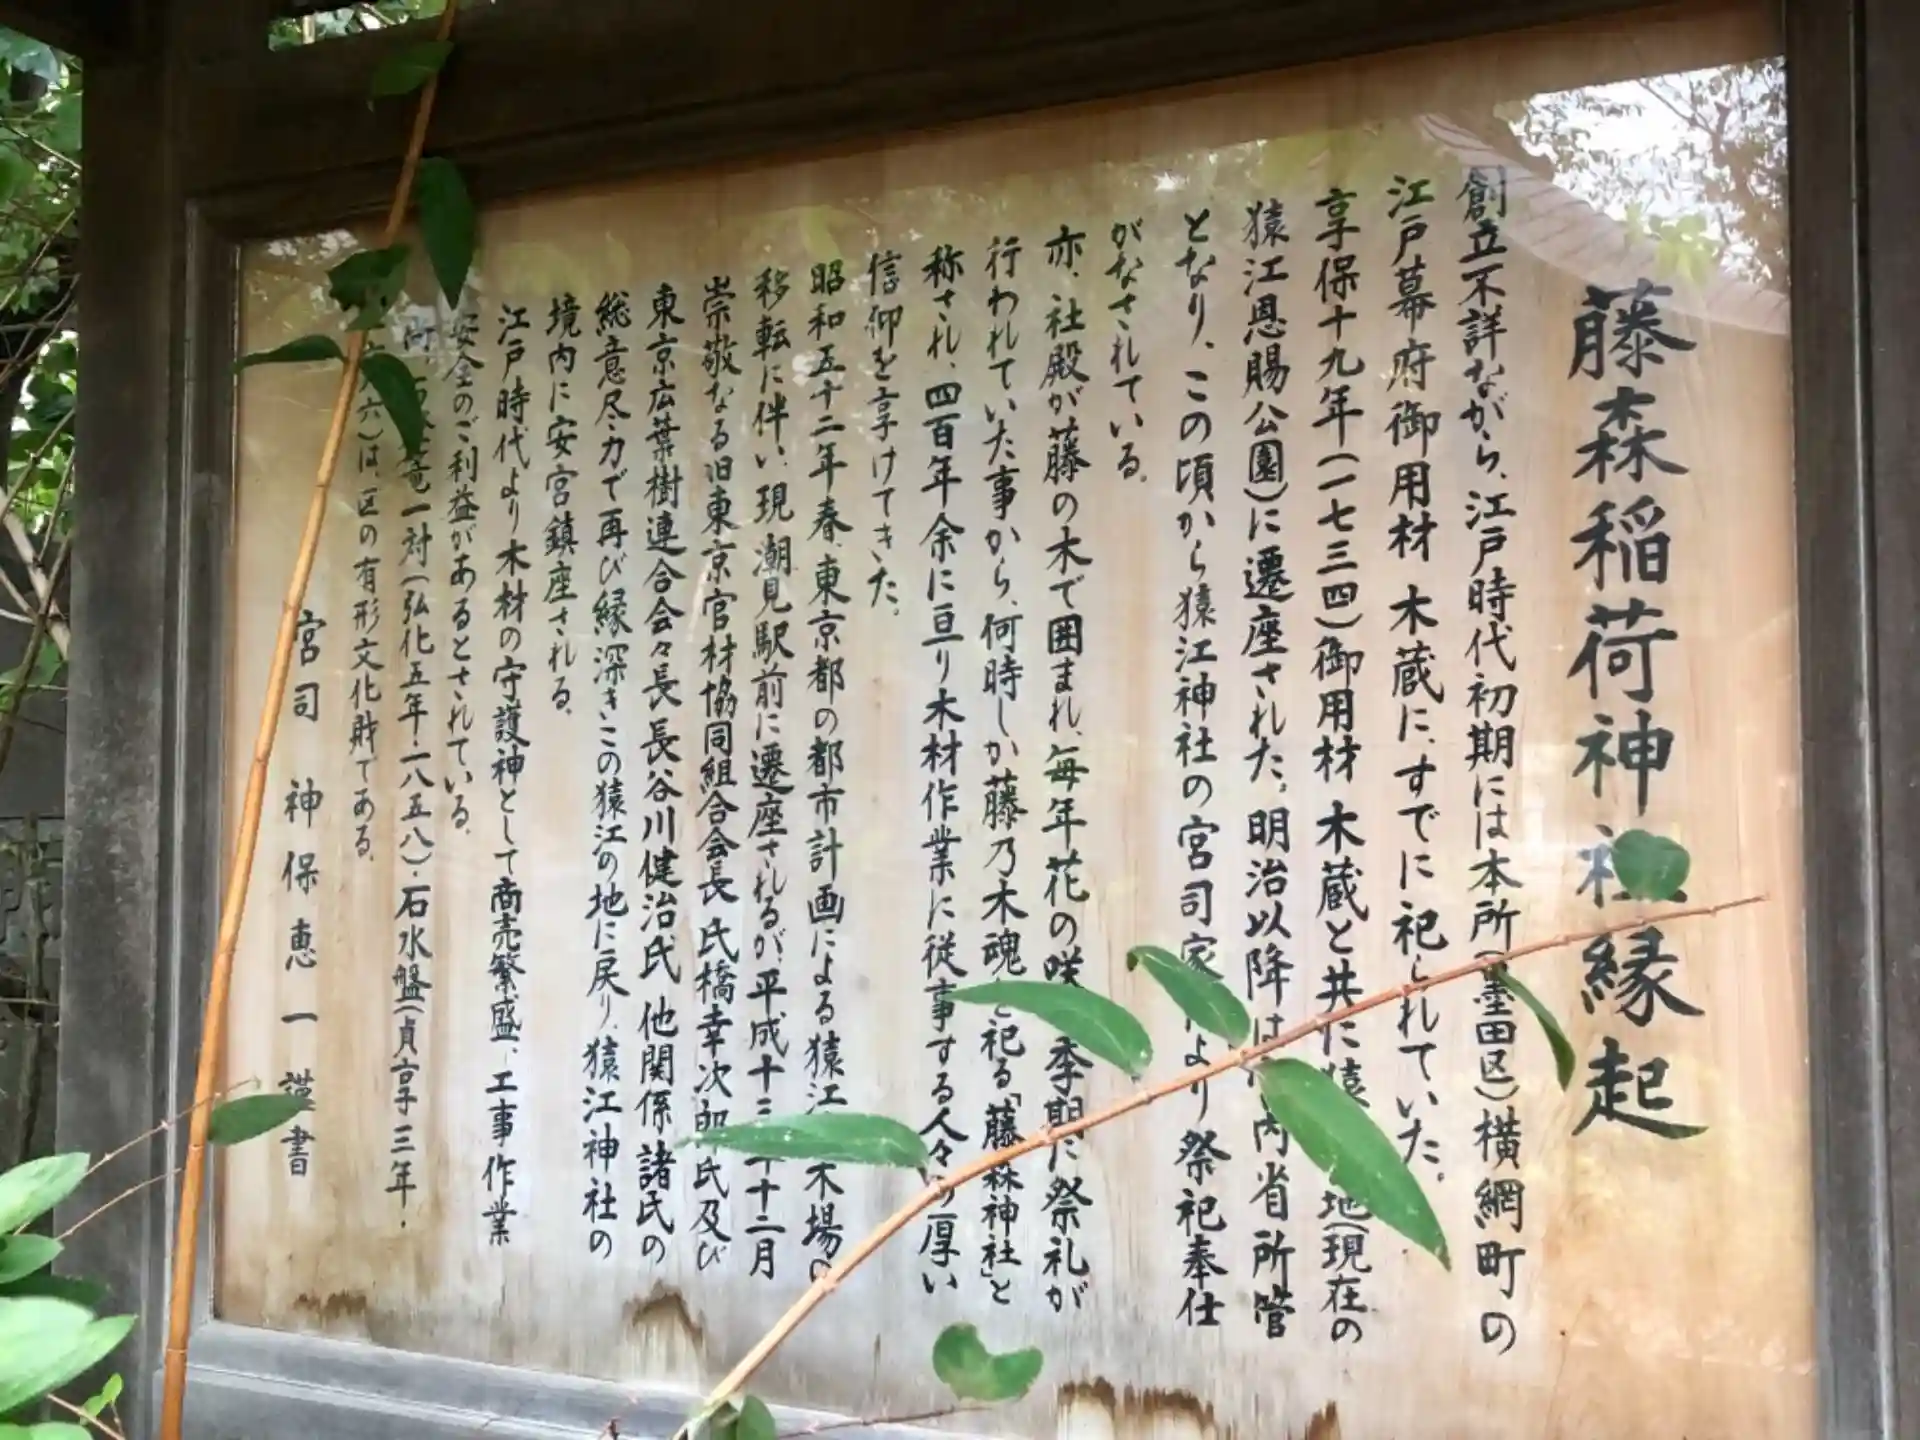 藤森稲荷神社縁起
創立不詳ながら、江戸時代初期には本所(墨田区)横網町の
江戸幕府御用材木蔵に、すでに祀られていた。
享保十九年(一七三四)御用材木蔵と共に猿 地(現在の
猿江恩賜公園)に遷座された。明治以降は 内省所管
となり、この頃から猿江神社の宮司家 より祭祀奉仕
がなされている。
亦、社殿が藤の木で囲まれ、毎年花の咲 季期に祭礼が
行われていた事から、何時しか藤乃木魂を祀る「藤森神社」と
称され、四百年余に亘り木材作業に従事する人々の厚い
信仰を享けてきた。
昭和五十二年春、東京都の都市計画による猿江 木場の
移転に伴い、現潮見駅前に遷座されるが、平成十三年十二月
崇敬なる旧東京官材協同組合会長氏橋幸次郎氏及び
東京広葉樹連合会々長長谷川健治氏他関係諸氏の
総意尽力で再び縁深きこの猿江の地に戻り、猿江神社の
境内に安宮鎮座される。
江戸時代より木材の守護神として商売繁盛、工事作業
安全のご利益があるとされている。
尚、 竜一対(弘化五年・一八五八)・石水盤(貞享三年・
六八六)は、区の有形文化財である。
宮司 神保恵一謹書